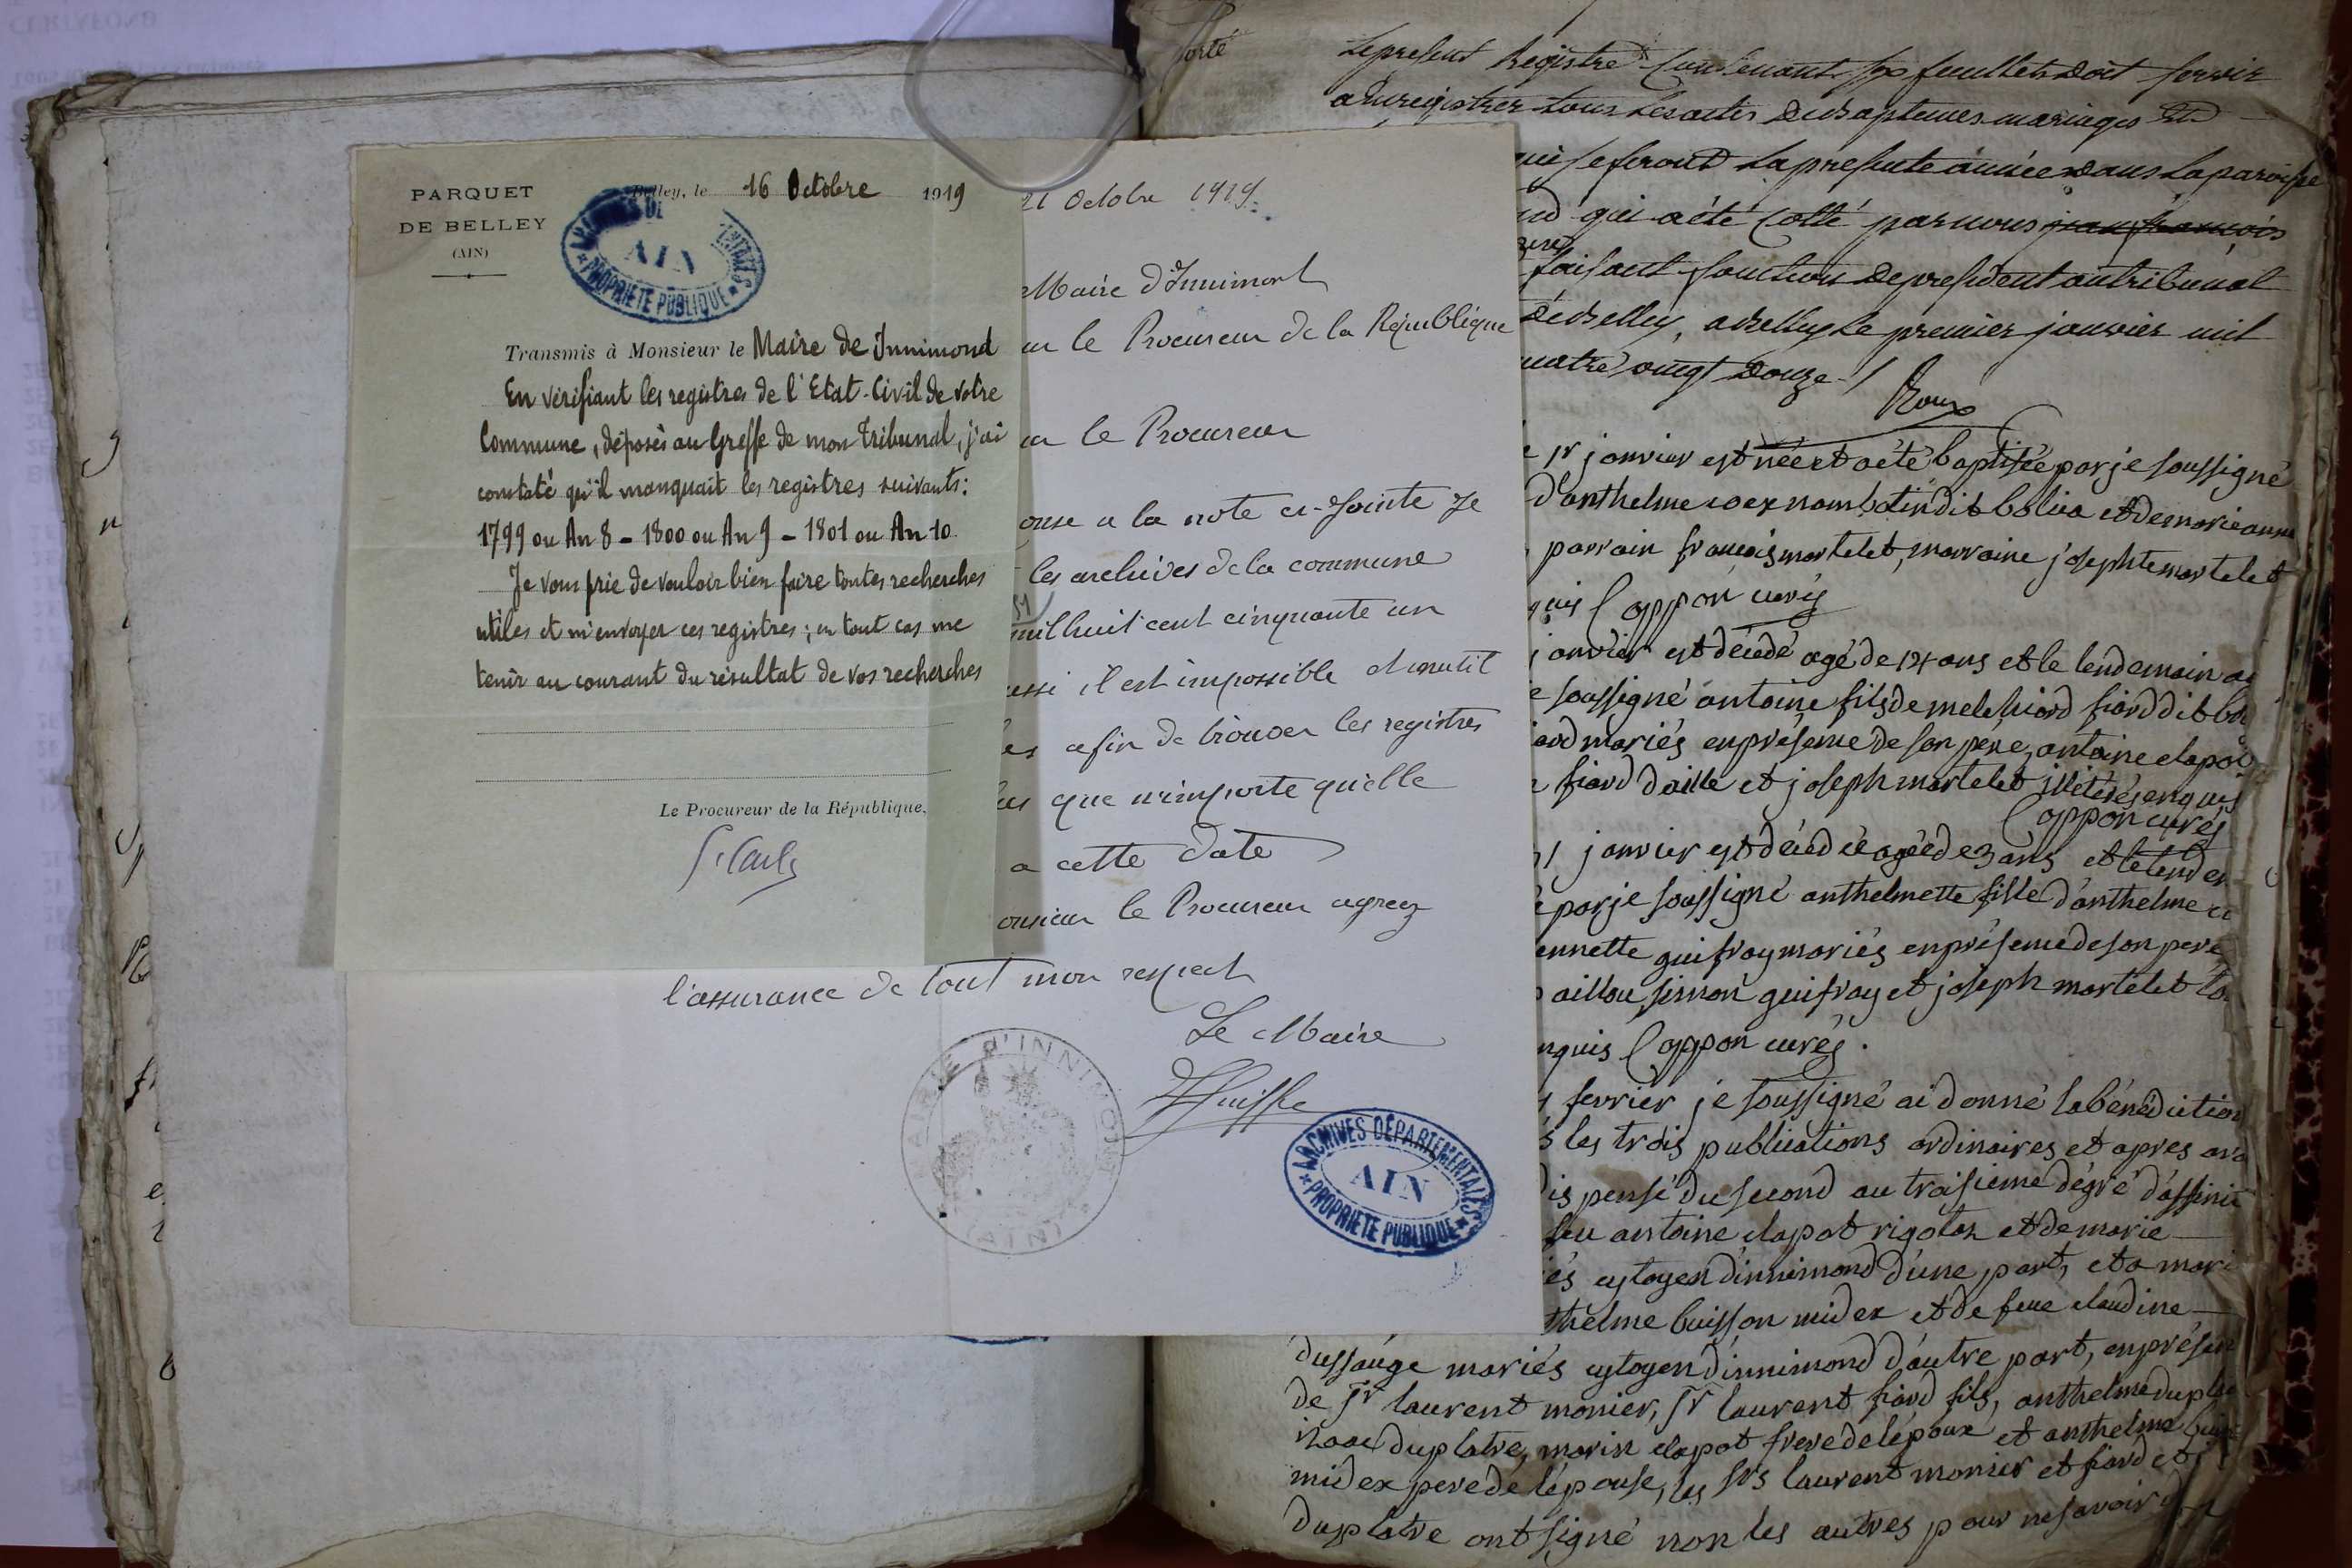 PARQUET
DE BELLEY
(AIN)
Belley, le 16 Octobre 1919
ARCHIVES DÉPARTEMENTALES
AIN
PROPRIÉTÉ PUBLIQUE
Transmis à Monsieur le Maire de Innimond
En vérifiant les registres de l'Etat-Civil de votre
Commune, déposés au Greffe de mon Tribunal, j'ai
constaté qu'il manquait les registres suivants:
1799 ou An 8 - 1800 ou An 9 - 1801 ou An 10.
Je vous prie de vouloir bien faire toutes recherches
utiles et m'envoyer ces registres; en tout cas me
tenir au courant du résultat de vos recherches
Le Procureur de la République,
21 Octobre 1919.
Maire d'Innimont
ur le Procureur de la République
ur le Procureur
onse a la note ci-Jointe Je
les archives de la commune
51
mil huit cent cinquante un
ussi il est impossible et inutil
es afin de trouver les registres
que n'importe qu'elle
a cette date
onsieur le Procureur agreez
l'assurance de tout mon respect
Le Maire
MAIRIE D'INNIMONT
(AIN)
ARCHIVES DÉPARTEMENTALES
AIN
PROPRIÉTÉ PUBLIQUE
orte
Le present Registre Contenant six feuillets doit servir
a Enregistrer tous les actes de baptemes mariages et
qui se feront La presente année dans La paroisse
nd qui a été Cotté par nous jean francois
faisant fonction de president au tribunal
de belley, a belley Le premier janvier mil
uatre vingt douze /
Roux
1r janvier est née et a été baptisée par je soussigné
d'anthelme coex nambotin dit bolica et de marie anne
parrain francois martelet, marraine josephte martelet
quis Coppon curé
janvier est décédé agé de 14 ans et le lendemain a
e soussigné antoine fils de melchiord fiard dit
ard mariés en présence de son pere, antoine clapot
fiard d'aille et joseph martelet illiterés enquis
Coppon curés
janvier est décédée agée de 3 ans et le lende
par je soussigné anthelmette fille d'anthelme
ennette guifray mariés en présence de son pere
aillou simon guifray et joseph martelet
nquis Coppon curés.
fevrier je soussigné ai donné la bénédiction
s les trois publications ordinaires et apres avo
dispensé du second au troisieme dégré d'affinit
feu antoine clapot rigolan et de marie
és cytoyen d'innimond d'une part, et a mari
thelme buisson midex et de feue claudine
dussauge mariés cytoyen d'innimond d'autre part, en présen
de sr laurent monier, sr laurent fiard fils, anthelme duplat
isaac duplatre, marin clapot frere de l'époux et anthelme buiss
midex pere de l'épouse, les srs laurent monier et fiard et
duplatre ont signé non les autres pour ne savoir